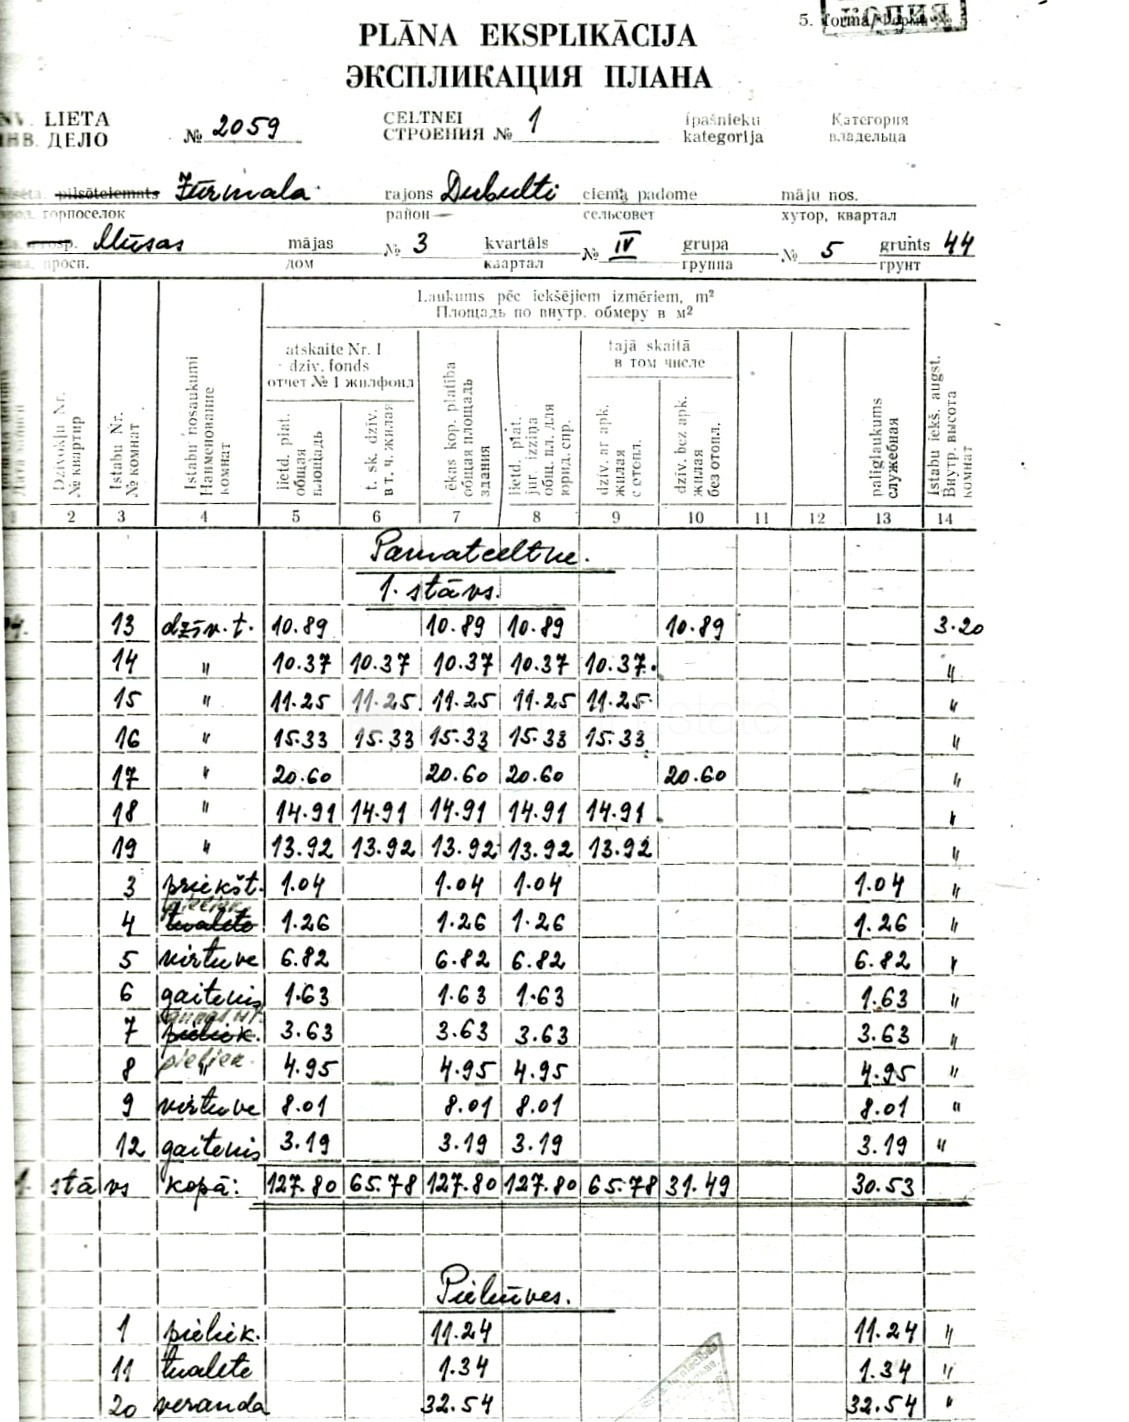 5. forma/Форма №
КОПИЯ
PLĀNA EKSPLIKĀCIJA
ЭКСПЛИКАЦИЯ ПЛАНА
LIETA № 2059 CELTNEI № 1 īpašnieku kategorija Категория владельца
ИНВ. ДЕЛО СТРОЕНИЯ
pilsētciemats Jūrmala rajons Dubulti ciema padome māju nos.
горпоселок район сельсовет хутор, квартал
Mūsas mājas № 3 kvartāls № IV grupa № 5 grunts 44
просп. дом квартал группа грунт
Laukums pēc iekšējiem izmēriem, m²
Площадь по внутр. обмеру в м²
atskaite Nr. 1 dziv. fonds
отчет № 1 жилфонд
tajā skaitā
в том числе
Dzīvokļu Nr. № квартир
Istabu Nr. № комнат
Istabu nosaukumi Наименование комнат
lietd. plat. общая площадь
t. sk. dzīv. в т. ч. жилая
ēkas kop. platība общая площадь здания
lietd. plat. jur. izziņa общ. пл. для юрид. спр.
dzīv. ar apk. жилая с отопл.
dzīv. bez apk. без отопл.
palīglaukums служебная
Istabu iekš. augst. Внутр. высота комнат
2 3 4 5 6 7 8 9 10 11 12 13 14
Pamatceltne.
1. stāvs.
13 dzīv. t. 10.89 10.89 10.89 10.89 3.20
14 " 10.37 10.37 10.37 10.37 10.37 "
15 " 11.25 11.25 11.25 11.25 11.25 "
16 " 15.33 15.33 15.33 15.33 15.33 "
17 " 20.60 20.60 20.60 20.60 "
18 " 14.91 14.91 14.91 14.91 14.91 "
19 " 13.92 13.92 13.92 13.92 13.92 "
3 priekšt. 1.04 1.04 1.04 1.04 "
4 tualete 1.26 1.26 1.26 1.26 "
5 virtuve 6.82 6.82 6.82 6.82 "
6 gaitenis 1.63 1.63 1.63 1.63 "
7 pieliek. 3.63 3.63 3.63 3.63 "
8 pieliek. " 4.95 4.95 4.95 4.95 "
9 virtuve 8.01 8.01 8.01 8.01 "
12 gaitenis 3.19 3.19 3.19 3.19 "
1. stāvs kopā: 127.80 65.78 127.80 127.80 65.78 31.49 30.53
Piebūves.
1 pieliek. 11.24 11.24 "
11 tualete 1.34 1.34 "
20 veranda 32.54 32.54 "